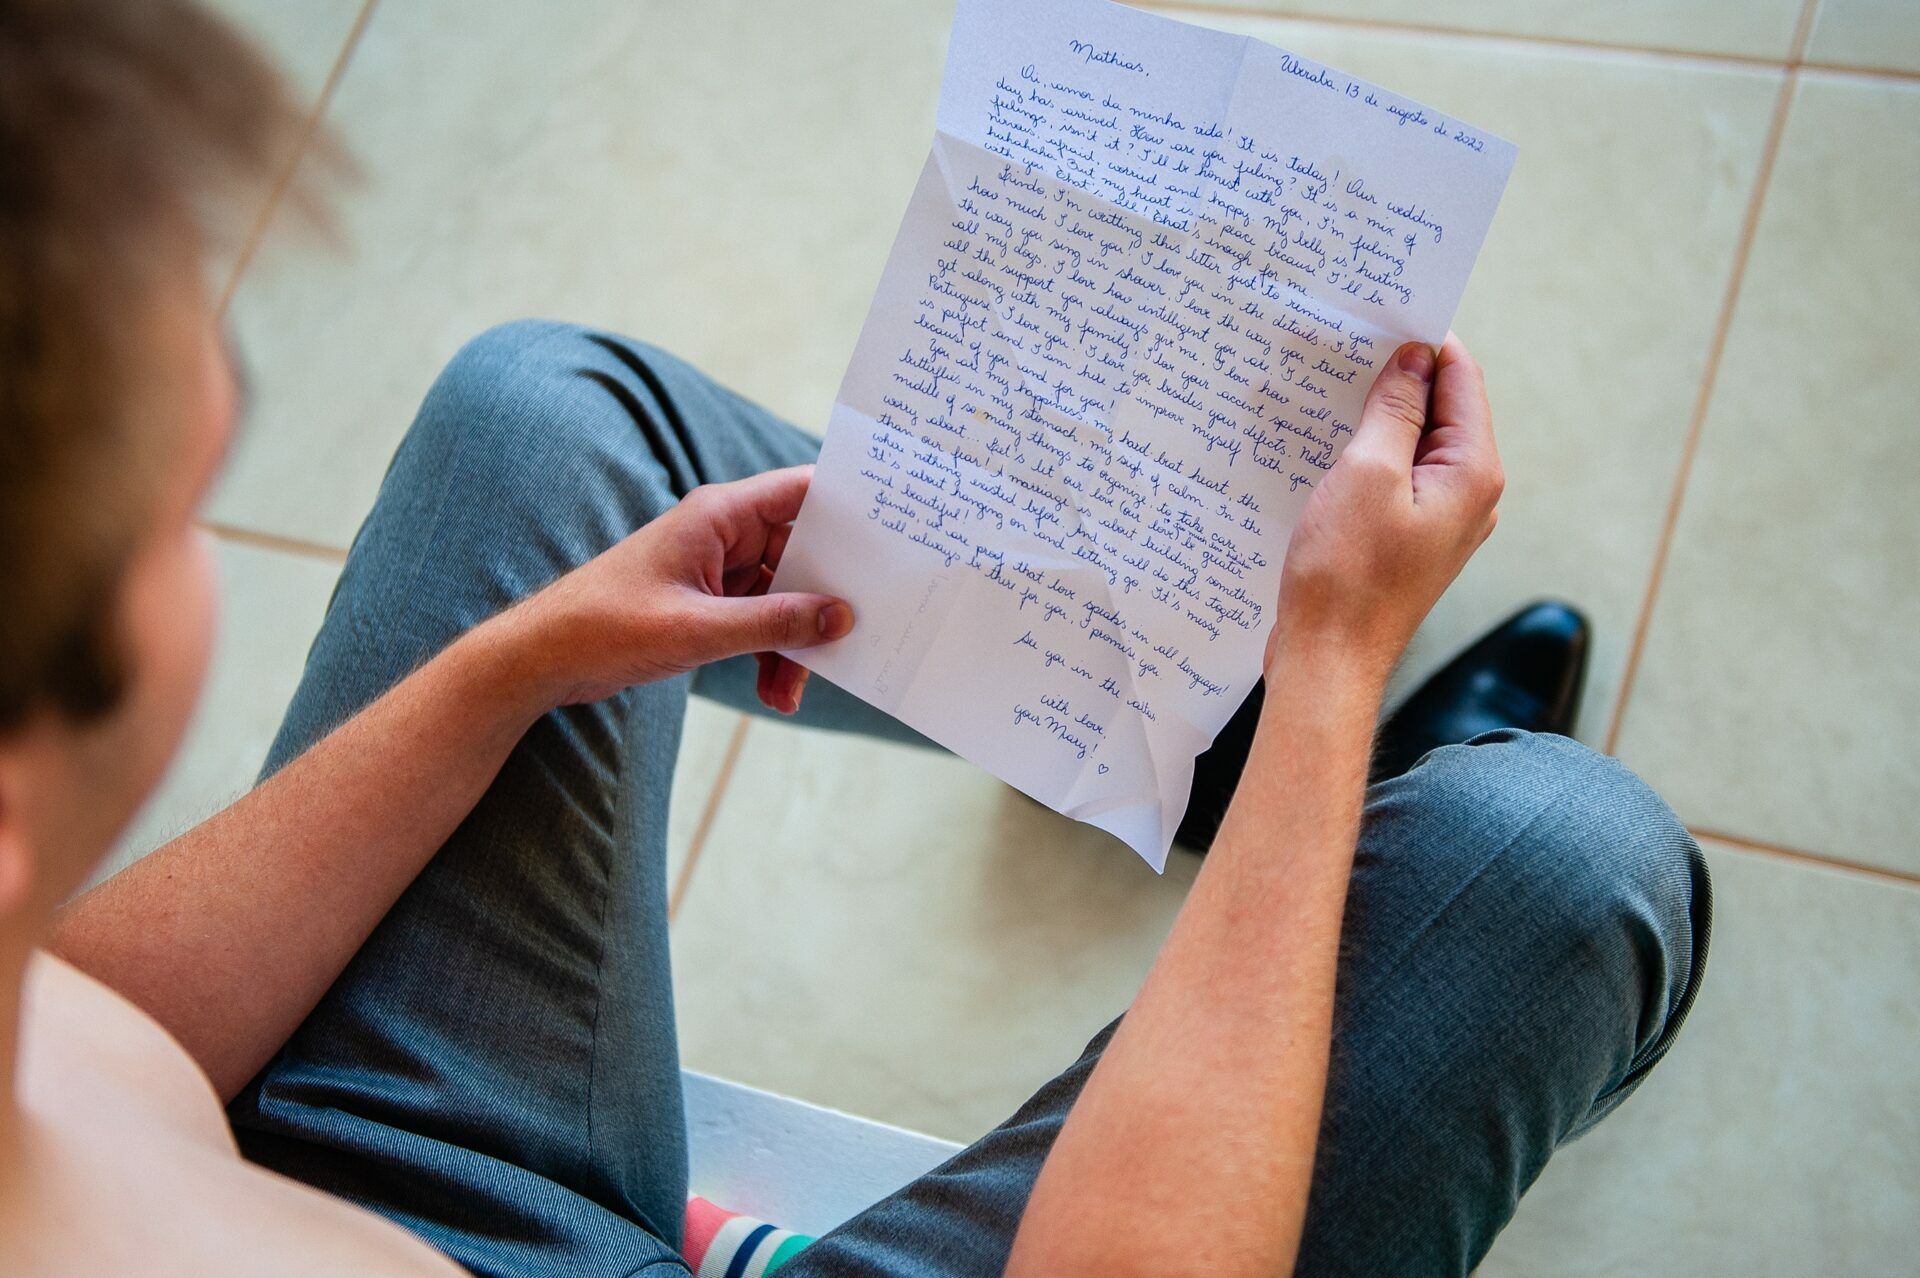 Uberaba, 13 de agosto de 2022.
Mathias,
Oi, amor da minha vida! It is today! Our wedding
day has arrived. How are you feeling? It is a mix of
feelings, isn't it? I'll be honest with you, I'm feeling
nirvais, afraid, worried and happy. My belly is hurting.
hahahaha But my heart is in peace because I'll be
with you. That's all! That's enough for me.
Lindo, I'm writting this letter just to remind you
how much I love you! I love you in the details. I love
the way you sing in shower, I love the way you treat
all my dogs, I love how intelligent you are, I love
all the support you always give me, I love how well you
get along with my family, I love your accent speaking
Portuguese. I love you. I love you besides your defects.
is perfect and I am here to improve myself with you
because of you and for you!
You are my happiness, my hard-beat heart, the
butterflies in my stomach, my sigh of calm. In the
middle of so many things to organize, to take care, to
worry about... Let's let our love (our love) be greater
than our fear! A marriage is about building something
where nothing existed before. And we will do this together!
It's about hanging on and letting go. It's messy
and beautiful!
Lindo, we are proof that love speaks in all languages!
I will always be there for you, I promise you.
See you in the altar,
with love,
your Mary! ♡